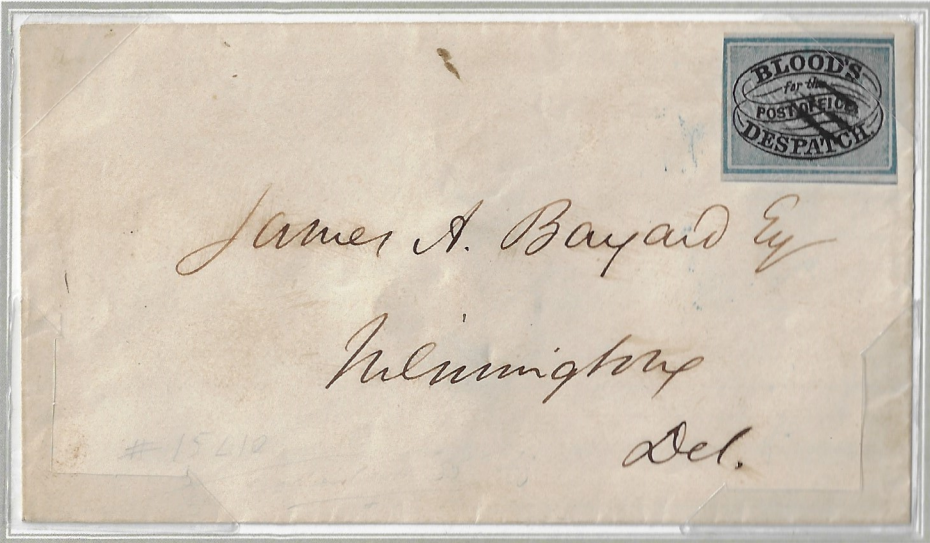 BLOOD'S
for the
POST OFFICE
DESPATCH
James A. Bayard Esq
Wilmington
Del.
# 15L10